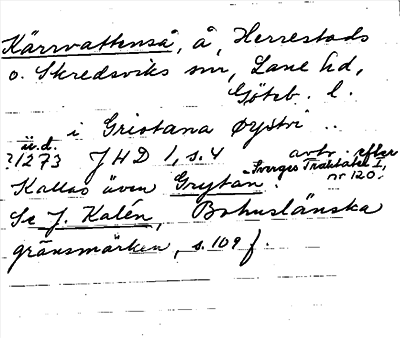 Kärrvattenså, å, Herrestads
o. Skredsviks snr, Lane hd,
Göteb. l.
i Griotana øystri ..
äv.d.
?1273 JHD 1, s. 4 avtr. efter
Sverges Traktater I,
nr 120.
Kallas även Grytån.
Se J. Kalén, Bohuslänska
gränsmärken, s. 109 f.